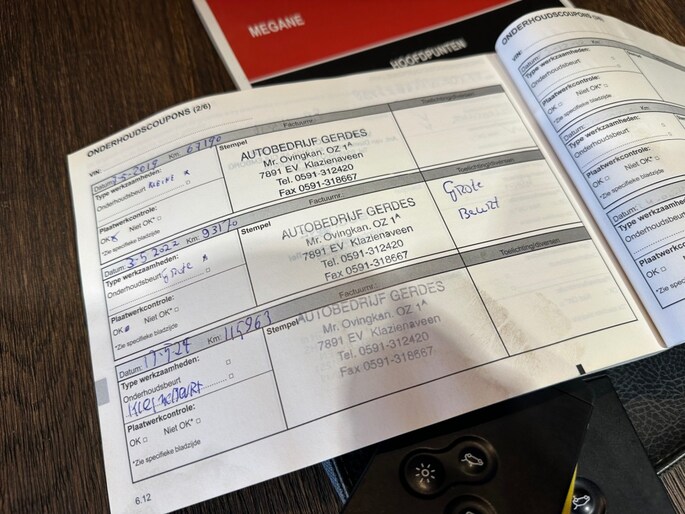 MEGANE
HOOFDPUNTEN
ONDERHOUDSCOUPONS (2/6)
VIN:
Datum: Km: 63170
Factuurnr.:
Toelichting/diversen
Type werkzaamheden:
Onderhoudsbeurt KLEINE x
Stempel
AUTOBEDRIJF GERDES
Mr. Ovingkan. OZ 1ᴬ
7891 EV Klazienaveen
Tel. 0591-312420
Fax 0591-318667
Plaatwerkcontrole:
OK x Niet OK* □
*Zie specifieke bladzijde
Datum: 3-5 2022 Km: 93170
Factuurnr.:
Toelichting/diversen
Type werkzaamheden:
Onderhoudsbeurt grote x
Stempel
AUTOBEDRIJF GERDES
Mr. Ovingkan. OZ 1ᴬ
7891 EV Klazienaveen
Tel. 0591-312420
Fax 0591-318667
Grote
Beurt
Plaatwerkcontrole:
OK Niet OK* □
*Zie specifieke bladzijde
Datum: 17-7-24 Km: 114963
Factuurnr.:
Toelichting/diversen
Type werkzaamheden: □
Onderhoudsbeurt □
Stempel
AUTOBEDRIJF GERDES
Mr. Ovingkan. OZ 1ᴬ
7891 EV Klazienaveen
Tel. 0591-312420
Fax 0591-318667
Plaatwerkcontrole:
OK □ Niet OK* □
*Zie specifieke bladzijde
6.12
ONDERHOUDSCOUPONS
VIN:
Datum: Km:
Type werkzaamheden:
Onderhoudsbeurt
Plaatwerkcontrole:
OK □ Niet OK* □
*Zie specifieke bladzijde
Datum: Km:
Type werkzaamheden:
Onderhoudsbeurt
Plaatwerkcontrole:
OK □ Niet OK* □
*Zie specifieke bladzijde
Type werkzaamheden:
Onderhoudsbeurt
Plaatwerkcontrole:
OK □
*Zie specifieke